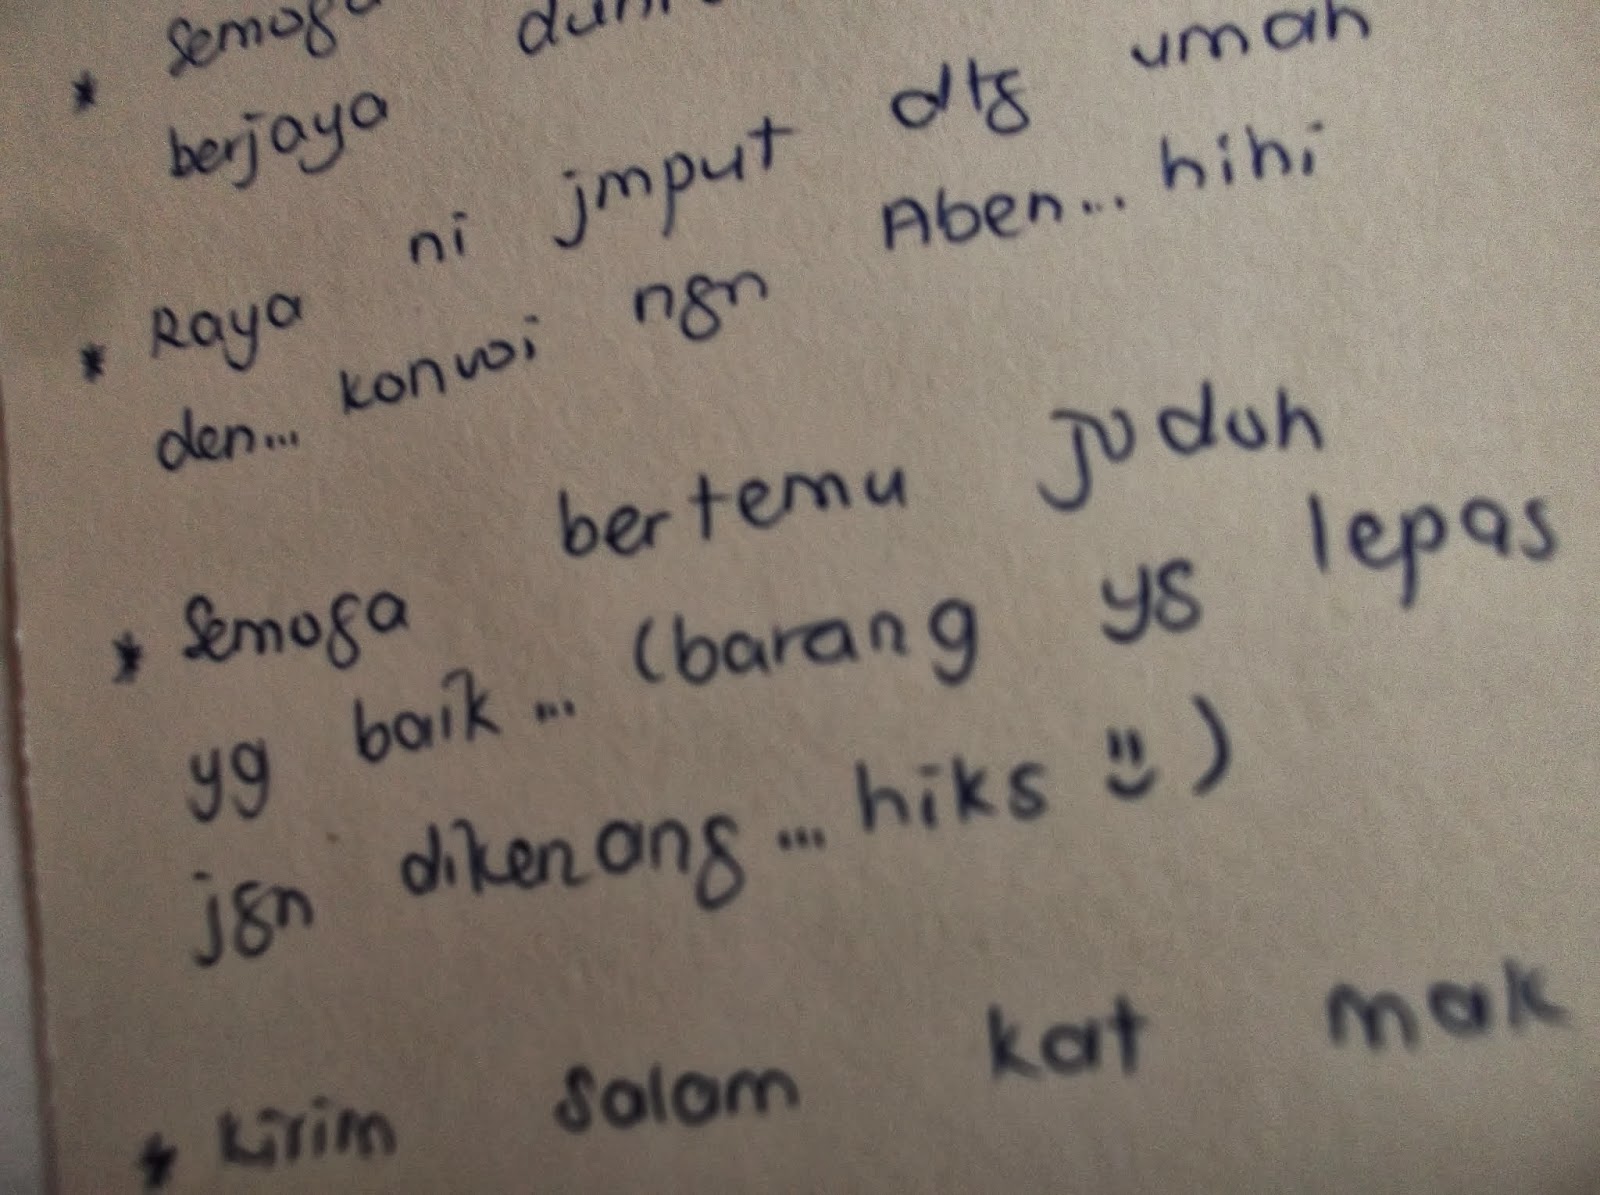 * Semoga
berjaya
* Raya ni jmput dtg umah
den... konvoi ngn Aben... hihi
* Semoga bertemu jodoh
yg baik... (barang yg lepas
jgn dikenang... hiks =))
* Kirim salam kat mak